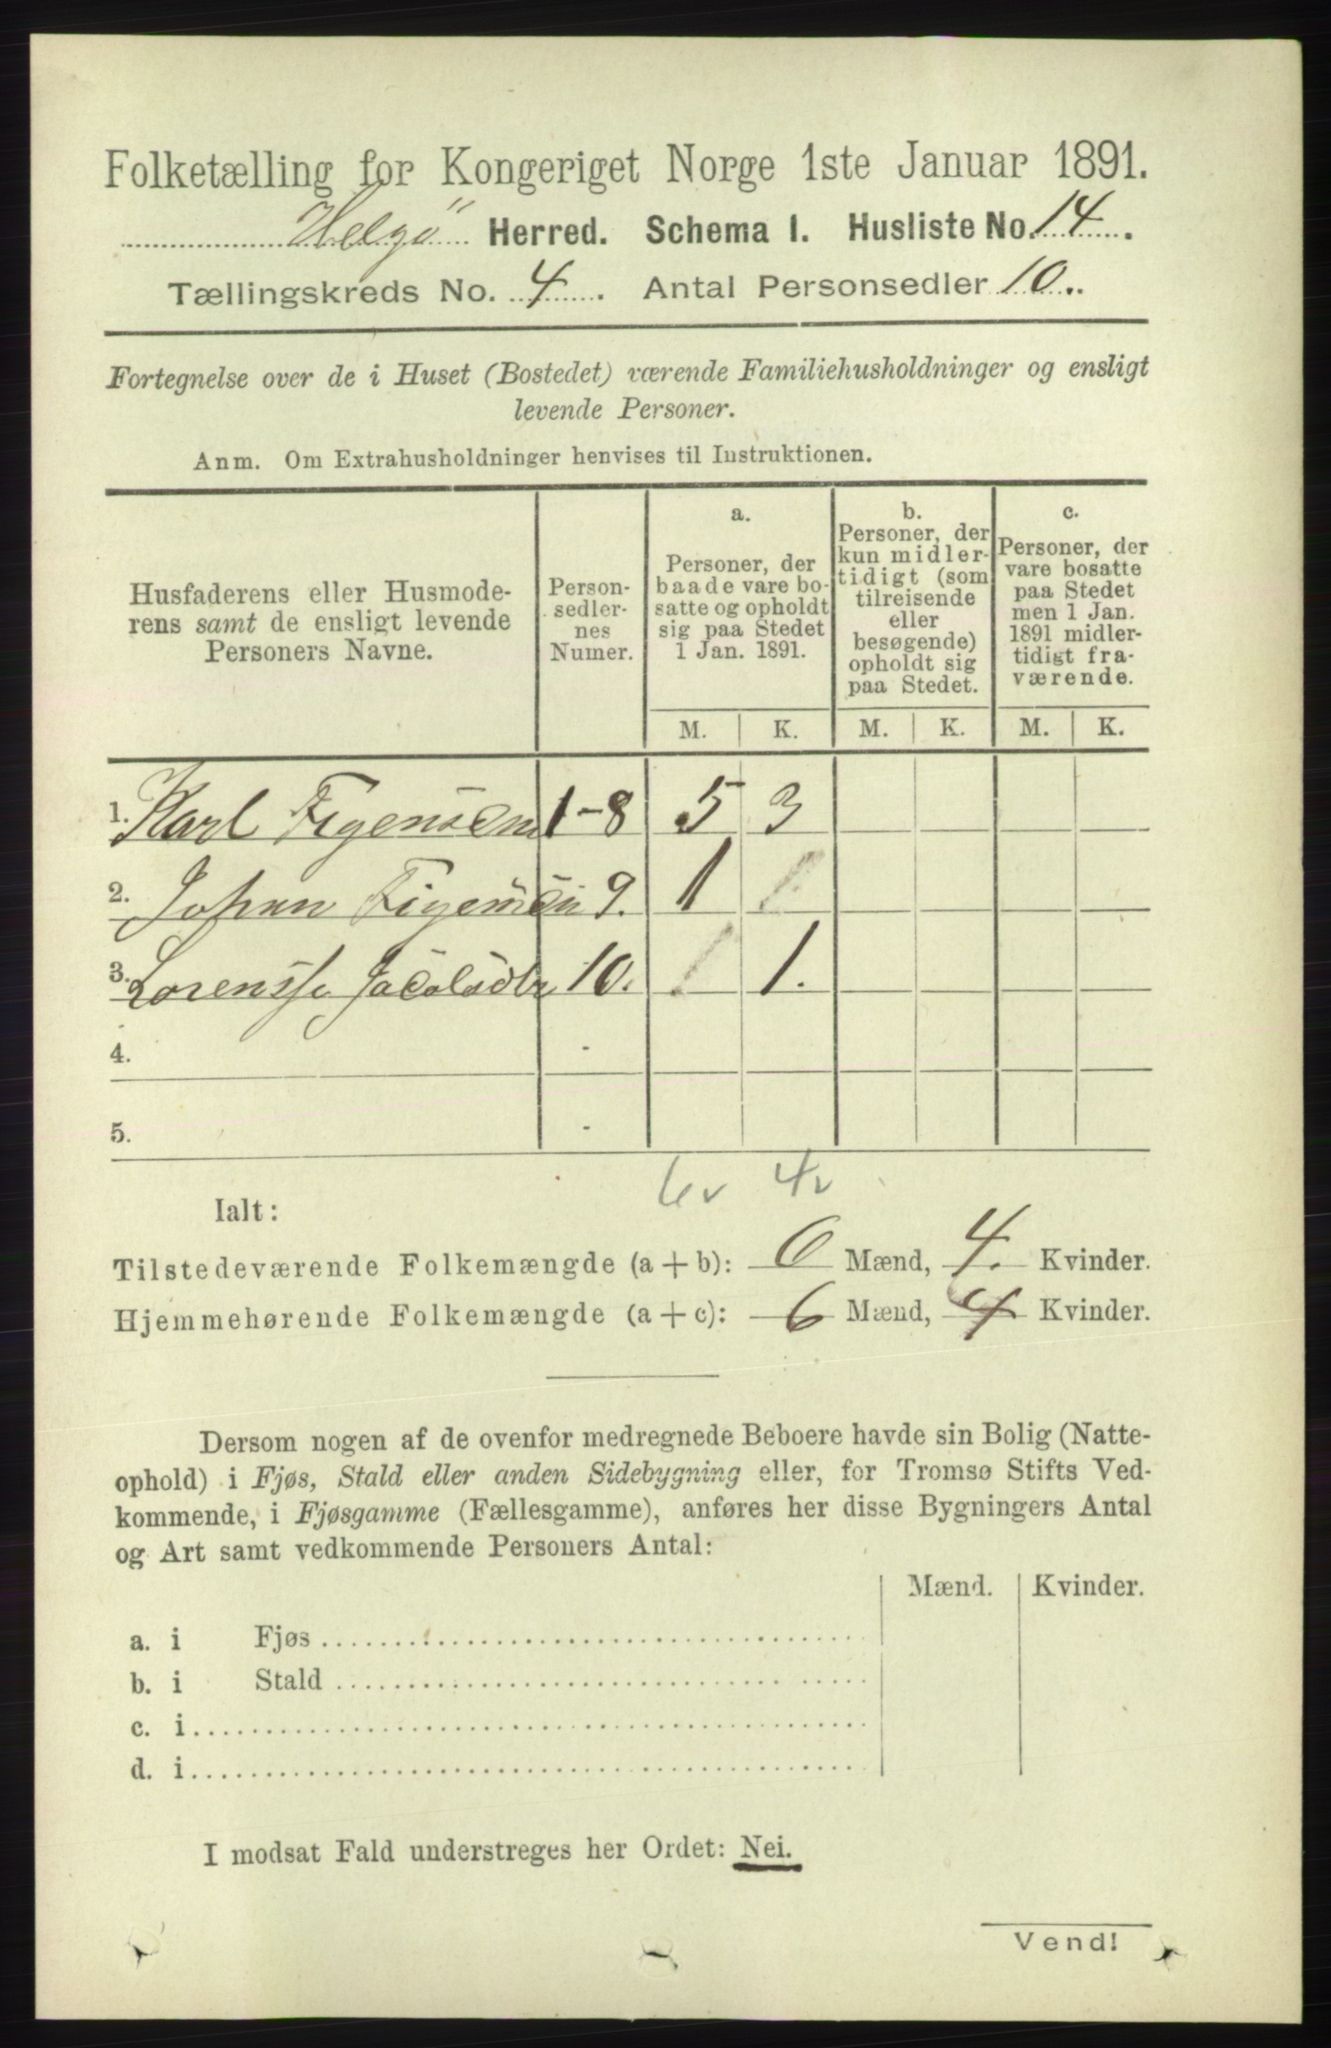 Folketælling for Kongeriget Norge 1ste Januar 1891.
Helgö Herred. Schema I. Husliste No. 14.
Tællingskreds No. 4. Antal Personsedler 10.
Fortegnelse over de i Huset (Bostedet) værende Familiehusholdninger og ensligt
levende Personer.
Anm. Om Extrahusholdninger henvises til Instruktionen.
Husfaderens eller Husmode-
rens samt de ensligt levende
Personers Navne.
Person-
sedler-
nes
Numer.
a.
Personer, der
baade vare bo-
satte og opholdt
sig paa Stedet
1 Jan. 1891.
b.
Personer, der
kun midler-
tidigt (som
tilreisende
eller
besøgende)
opholdt sig
paa Stedet.
c.
Personer, der
vare bosatte
paa Stedet
men 1 Jan.
1891 midler-
tidigt fra-
værende.
M. K. M. K. M. K.
1. Karl 1-8 5 3
2. Johan 9. 1 1
3. 10. 1 1.
4. -
5. -
6v 4v
Ialt:
Tilstedeværende Folkemængde (a+b): 6 Mænd, 4. Kvinder.
Hjemmehørende Folkemængde (a+c): 6 Mænd, 4 Kvinder.
Dersom nogen af de ovenfor medregnede Beboere havde sin Bolig (Natte-
ophold) i Fjøs, Stald eller anden Sidebygning eller, for Tromsø Stifts Ved-
kommende, i Fjøsgamme (Fællesgamme), anføres her disse Bygningers Antal
og Art samt vedkommende Personers Antal:
Mænd. Kvinder.
a. i Fjøs
b. i Stald
c. i
d. i
I modsat Fald understreges her Ordet: Nei.
Vend!